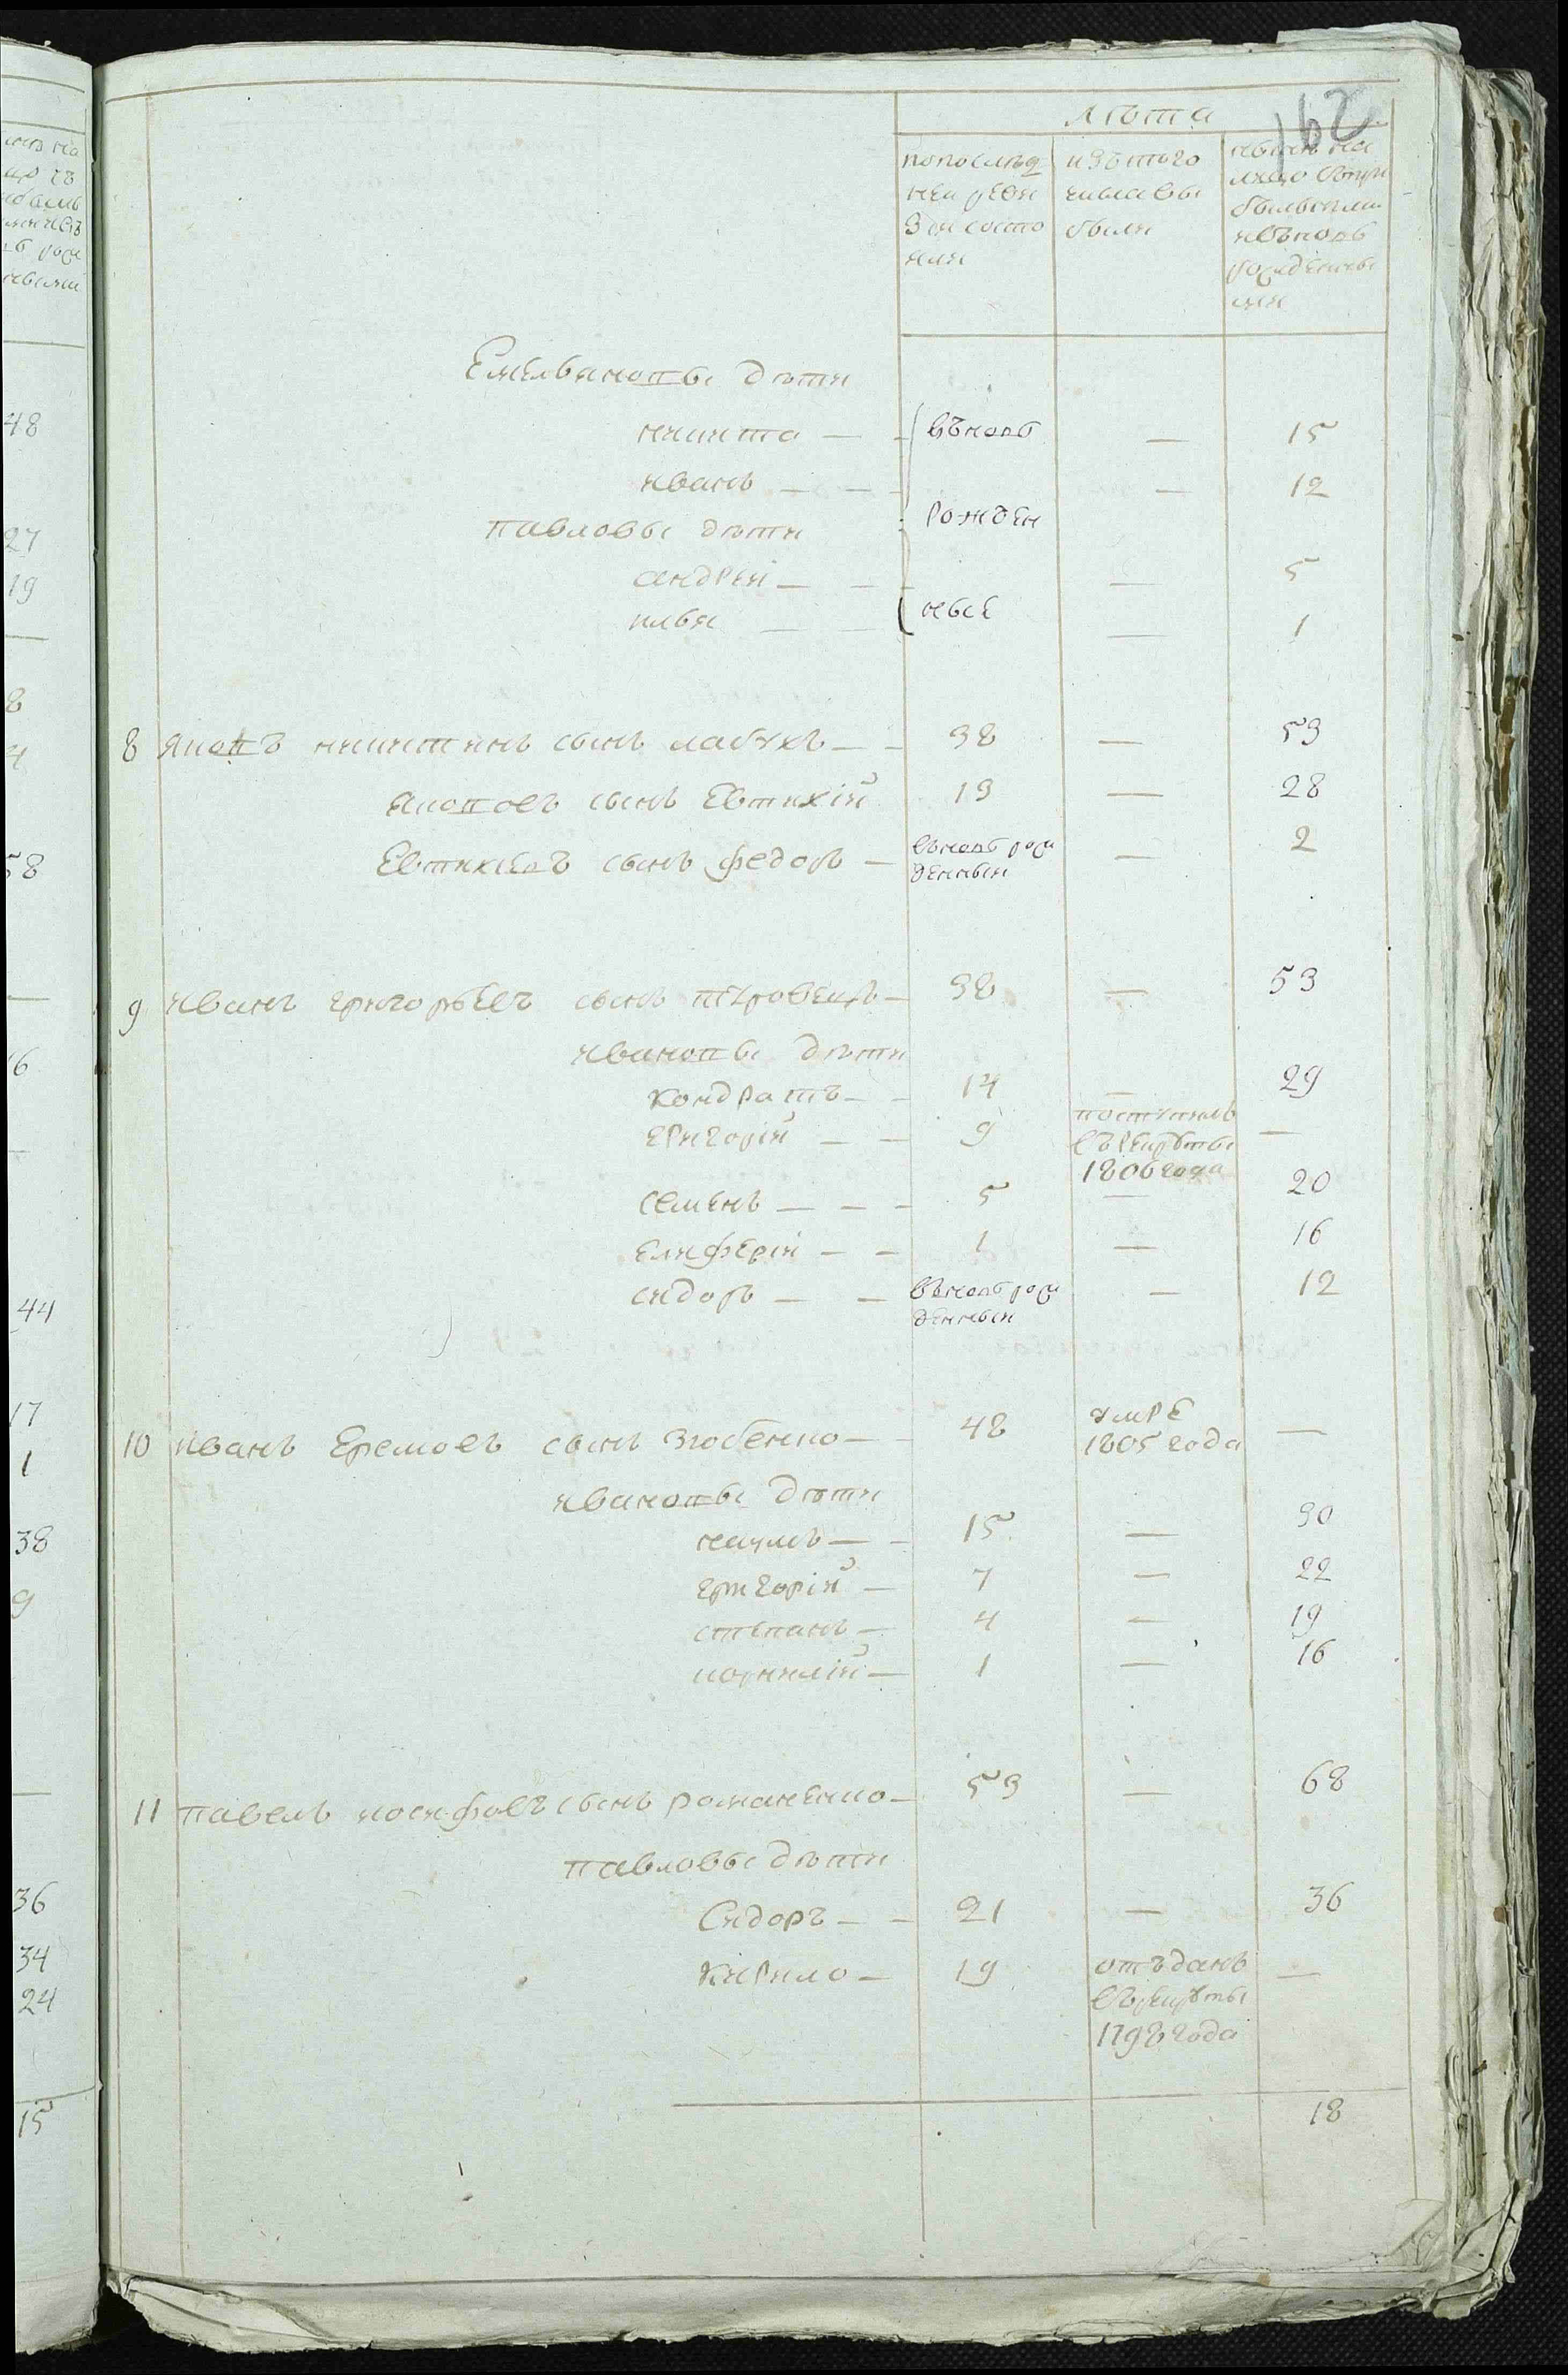 162
лѣта
по последней ревизіи состояли
изъ того числа выбыли
нынѣ на лицо съ прибылыми и вновь рожденными
Емельяновы дѣти
никита — — вѣновь — 15
иванъ — — — 12
павловы дѣти рожден
андрей — — — 5
илья — — ные — 1
8 яковъ никитинъ сынъ лабухъ — — 38 — 53
яковлевъ сынъ Евтихій 13 — 28
Евтихіевъ сынъ федоръ — вѣновь рожденный — 2
9 иванъ григорьевъ сынъ петровецъ — 38 — 53
ивановы дѣти
кондратъ — — 14 — 29
григорій — — 9 поступилъ въ рекруты 1806 года —
семенъ — — — 5 — 20
елиферій — — 1 — 16
сидоръ — — вѣновь рожденный — 12
10 иванъ Еремѣевъ сынъ Згобенко — — 48 умре 1805 года —
ивановы дѣти
наумъ — — 15 — 30
григорій — 7 — 22
степанъ — 4 — 19
корнилій — 1 — 16
11 павелъ иосифовъ сынъ романенко — 53 — 68
павловы дѣти
Сидоръ — — 21 — 36
кирило — 19 отъданъ въ рекруты 1798 года —
18
48
27
19
—
8
4
58
—
16
—
44
17
1
38
9
—
36
34
24
15